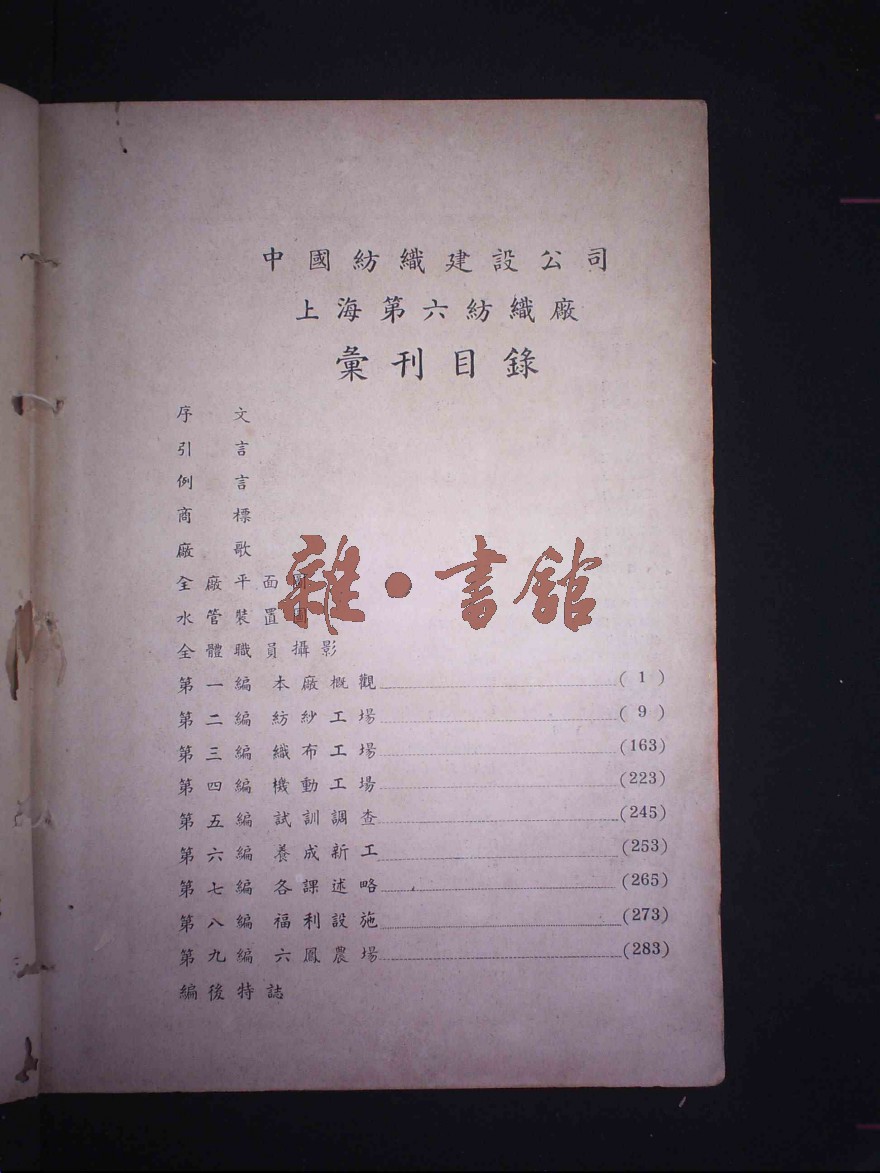 中國紡織建設公司
上海第六紡織廠
彙刊目錄
序文
引言
例言
商標
廠歌
全廠平面圖
水管裝置圖
全體職員攝影
第一編 本廠概觀 (1)
第二編 紡紗工場 (9)
第三編 織布工場 (163)
第四編 機動工場 (223)
第五編 試訓調查 (245)
第六編 養成新工 (253)
第七編 各課述略 (265)
第八編 福利設施 (273)
第九編 六鳳農場 (283)
編後特誌
雜·書館